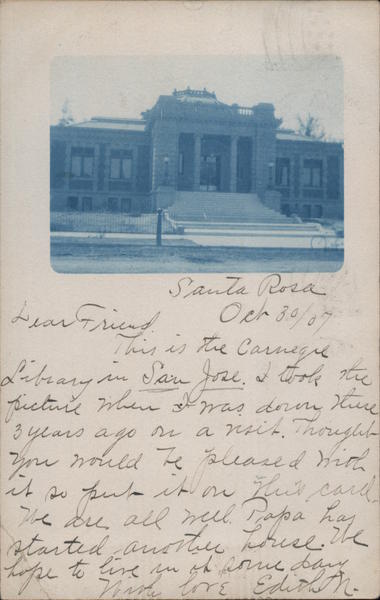 Santa Rosa
Oct 30/07
Dear Friend
This is the Carnegie
Library in San Jose. I took the
picture when I was down there
3 years ago on a visit. Thought
you would be pleased with
it so put it on this card.
We are all well. Papa has
started another house. We
hope to live in it some day
With love Edith N.